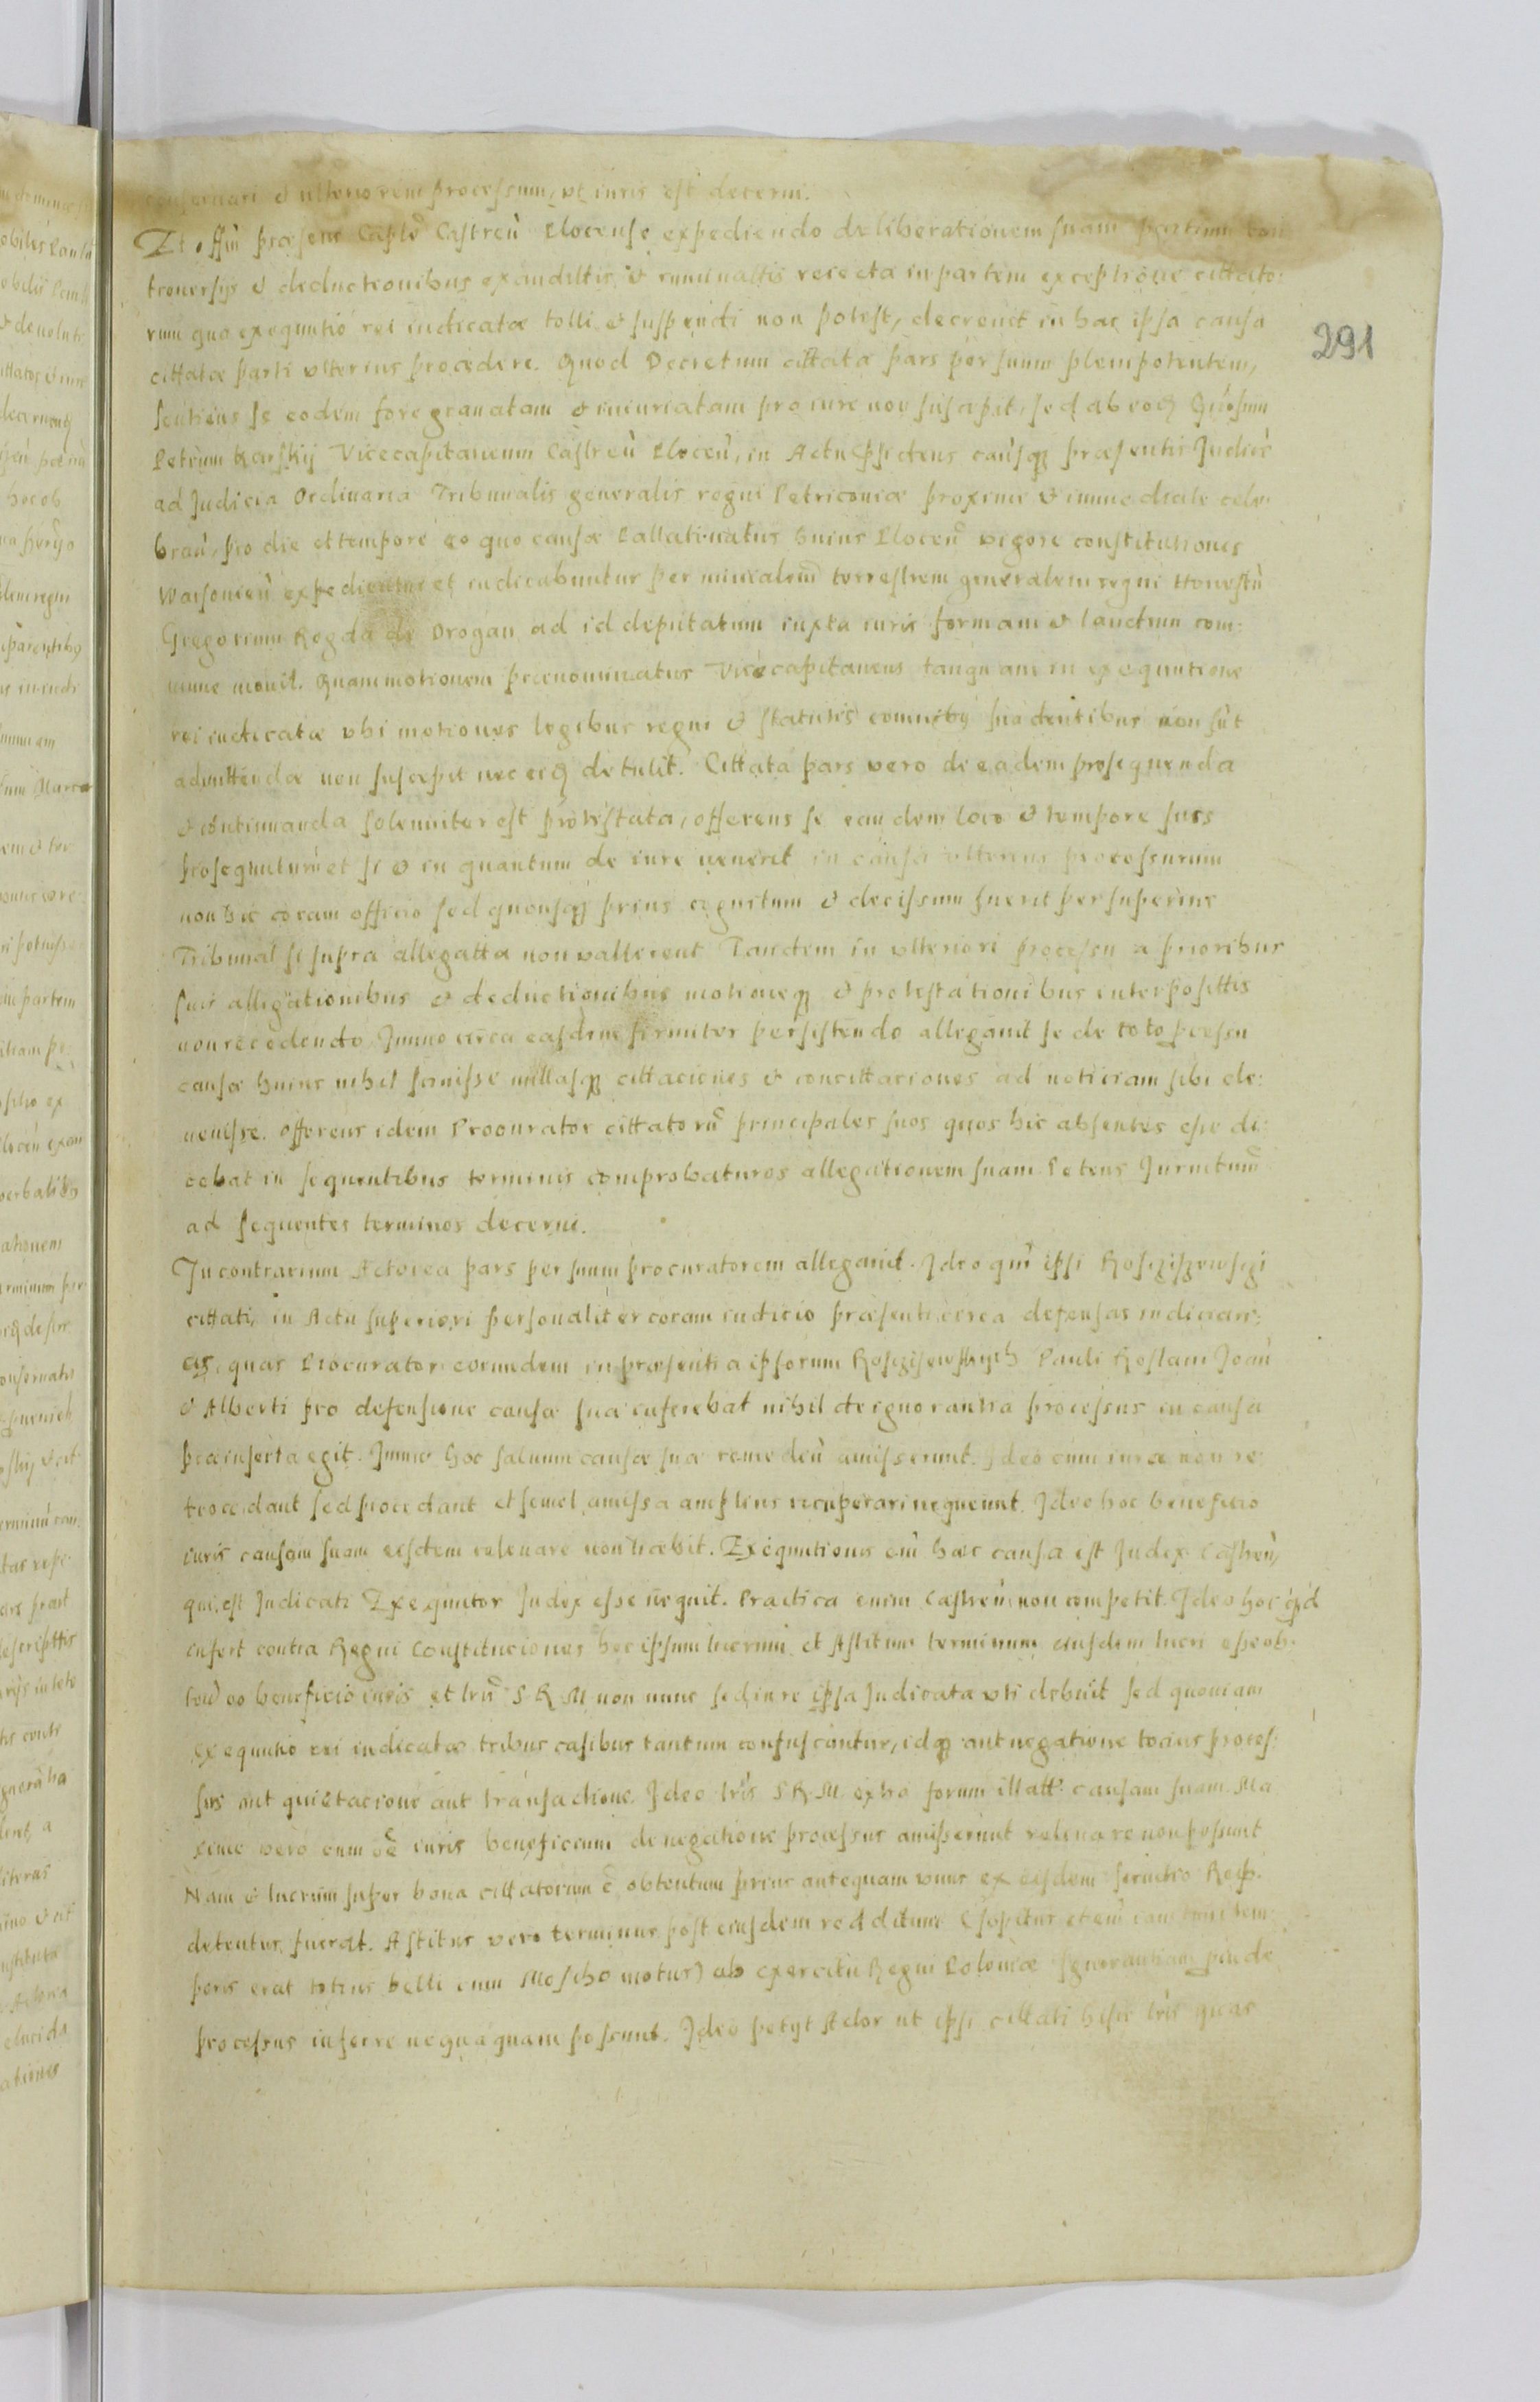 conseruari et ulteriorem processum, ut iuris est decerni.
Et offm præsens Captle Castreñ Plocense expediendo deliberationem suam partium con
trouersijs et deductionibus exauditis et ruminattis reiecta in partem exceptione cittato:
rum quo exequutio rei iudicatæ tolli et suspendi non potest, decreuit in hac ipsa causa
cittatæ parti ulterius procedere. Quod Decretum cittata pars per suum plenipotentem,
sentiens se eodem fore grauatam et iniuriatam pro iure non suscæpit, sed ab eoq Gñosum
Petrum Karskij Vicecapitaneum Castreñ Ploceñ, in Actu psidens causæq præsentis Judicẽ
ad Judicia Ordinaria Tribunalis generalis regni Petricouiæ proxime et immediate cele:
brañ, pro die et tempore eo quo causæ Pallatinatus huius Ploceñ vigore constitutionis
Warsouieñ expedientur et iudicabuntur per ministerialem terrestrem generalem regni Honestũ
Gregorium Rogda de Drogan ad id deputatum iuxta iuris formam et lauctum com:
mune mouit. Quam motionem prænominatus Vicecapitaneus tanquam in exequutione
rei iudicatæ ubi motiones legibus regni et statutis omnibus suadentibus non sũt
admittendæ non suscæpit nec eiq detulit. Cittata pars vero de eadem prosequenda
et continuanda solenniter est protestata, offerens se eandem loco et tempore suis
prosequuturũ et si et in quantum de iure uenerit in causa ulterius processurum
non hic coram officio sed quousq prius cognitum et decissum fuerit per superius
Tribunal si supra allegatta non vallerent Tandem in ulteriori processu a prioribus
suis allegationibus et deductionibus motioneq et protestationibus interposittis
non recedendo Immo circa easdem firmiter persistendo allegauit se de toto pcessu
causæ huius nihil sciuisse nullasq cittaciones et concittaciones ad noticiam sibi de:
uenisse. Offerens idem Procurator cittatorũ principales suos quos hic absentes esse di:
cebat in sequentibus terminis comprobaturos allegationem suam Petens Jurmtum
ad sequentes terminos decerni.
In contrarium Actorea pars per suum procuratorem allegauit. Ideo qm̃ ipsi Rosciszewscij
cittati, in Actu superiori personaliter coram iudicio præsenti circa defensas iudiciari:
as, quas Procurator eorundem in præsentia ipsorum Rosciszewskych Pauli Roslani Joañ
et Alberti pro defensione causæ suæ inferebat nihil de ignorantia processus in causa
præinserta egit. Immo hoc saluum causæ suæ remediũ amisserunt. Ideo cum iura non re:
trocædant sed procædant et semel amissa amplius recuperari nequeunt. Ideo hoc beneficio
iuris causam suam eisdem releuare non licebit. Exequutionis em̃ hæc causa est Judex Castreñ,
qui est Judicati Exequutor Judex esse nequit. Practica enim Castreñ non competit. Ideo hoc qd
infert contra Regni Constituciones hoc ipsum lucrum et Astitum terminum eiusdem lucri esse ob:
tentũ eo beneficio iuris et lrũ S R M non nunc sed in re ipsa Judicata uti debuit sed quoniam
exequutio rei iudicatæ tribus casibus tantum confuscantur, idq aut negatione tocius proces:
sus aut quietacione aut transactione. Ideo lris S R M extra forum illatt causam suam Ma
xime vero cum õe iuris beneficium denegatione processus amisserunt releuare non possunt
Nam et lucrum super bona cittatorum ẽ obtentum prius antequam unus ex eisdem seruitio Reip.
detentus fuerat. Astitus vero terminus post eiusdem redditum (sopitus etem̃ iam tunc tem:
poris erat totius belli cum Moscho motus) ab exercitu Regni Poloniæ Ignorantiam pinde
processus inferre nequaquam possunt. Ideo petyt Actor ut ipsi cittati hisce lris quas
291